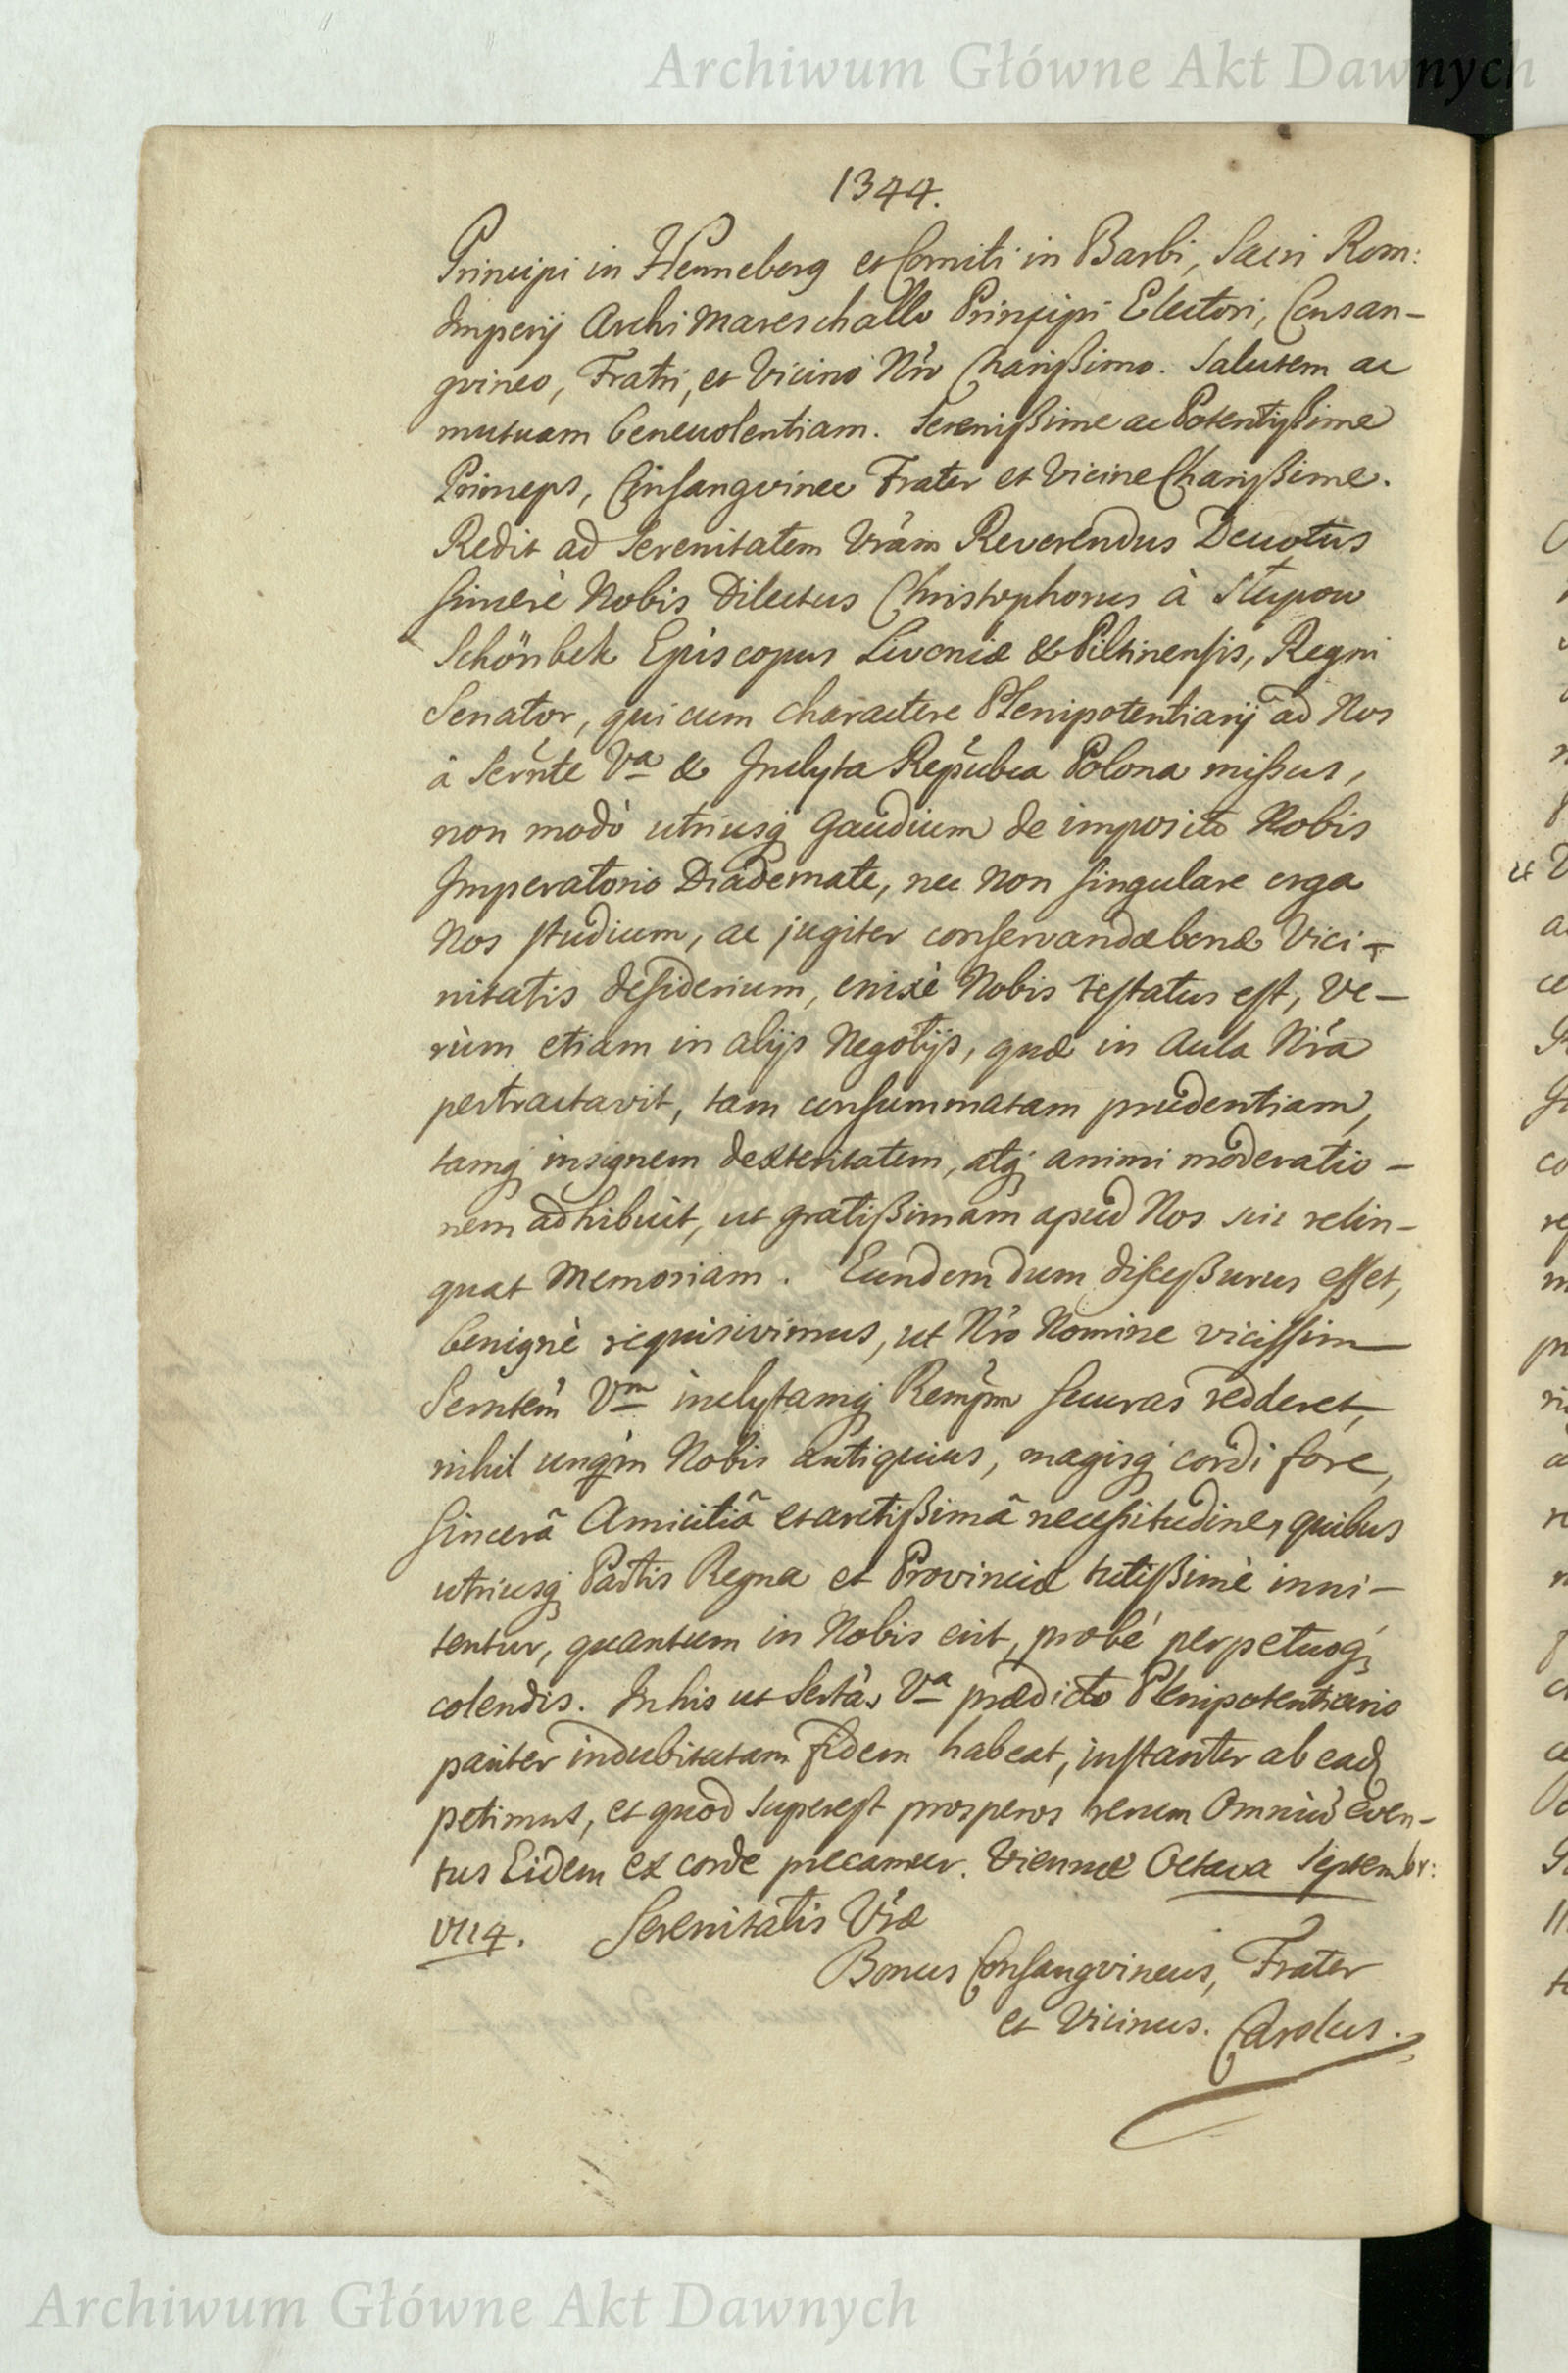 Archiwum Główne Akt Dawnych
1344.
Principi in Henneberg et Comiti in Barbi, Sacri Rom:
Imperij Archi Mareschallo Principi Electori, Consan-
gvineo, Fratri, et Vicino Nro Charißimo. Salutem ac
mutuam benevolentiam. Serenißime ac Potentißime
Princeps, Consangvinee Frater et Vicine Charißime.
Redit ad Serenitatem Vram Reverendus Devotus
sincerè Nobis Dilectus Christophorus à Slupow
Schönbek Episcopus Livoniæ & Piltinensis, Regni
Senator, qui cum charactere Plenipotentiarij ad Nos
à Sernte Va & Inclyta Republca Polona mißus,
non modò utriusq gaudium de imposito Nobis
Imperatorio Diademate, nec non singulare erga
Nos studium, ac jugiter conservandæ bonæ Vici-
nitatis desiderium, enixè Nobis testatus est, ve-
rùm etiam in alijs Negotijs, quæ in Aula Nra
pertractavit, tam consummatam prudentiam,
tamq insignem dexteritatem, atq animi moderatio-
nem adhibuit, ut gratißimam apud Nos sui relin-
quat memoriam. Eundem dum disceßurus esset,
benignè requisivimus, ut Nro Nomine vicissim
Serntem Vm inclytamq Rempm securas redderet,
nihil unqm Nobis antiquius, magisq cordi fore,
sincerâ Amicitiâ et arctißimâ necessitudine, quibus
utriusq Partis Regna et Provinciæ tutißimè inni-
tentur, quantum in Nobis erit, probè perpetuoq
colendis. In his ut Sertas Va prædicto Plenipotentiario
pariter indubitatam fidem habeat, instanter ab ead
petimus, et quod superest prosperos rerum Omniu even-
tus Eidem ex corde precamur. Viennæ Octava Septembr:
1714. Serenitatis Vræ
Bonus Consangvineus, Frater
et Vicinus. Carolus.
Archiwum Główne Akt Dawnych